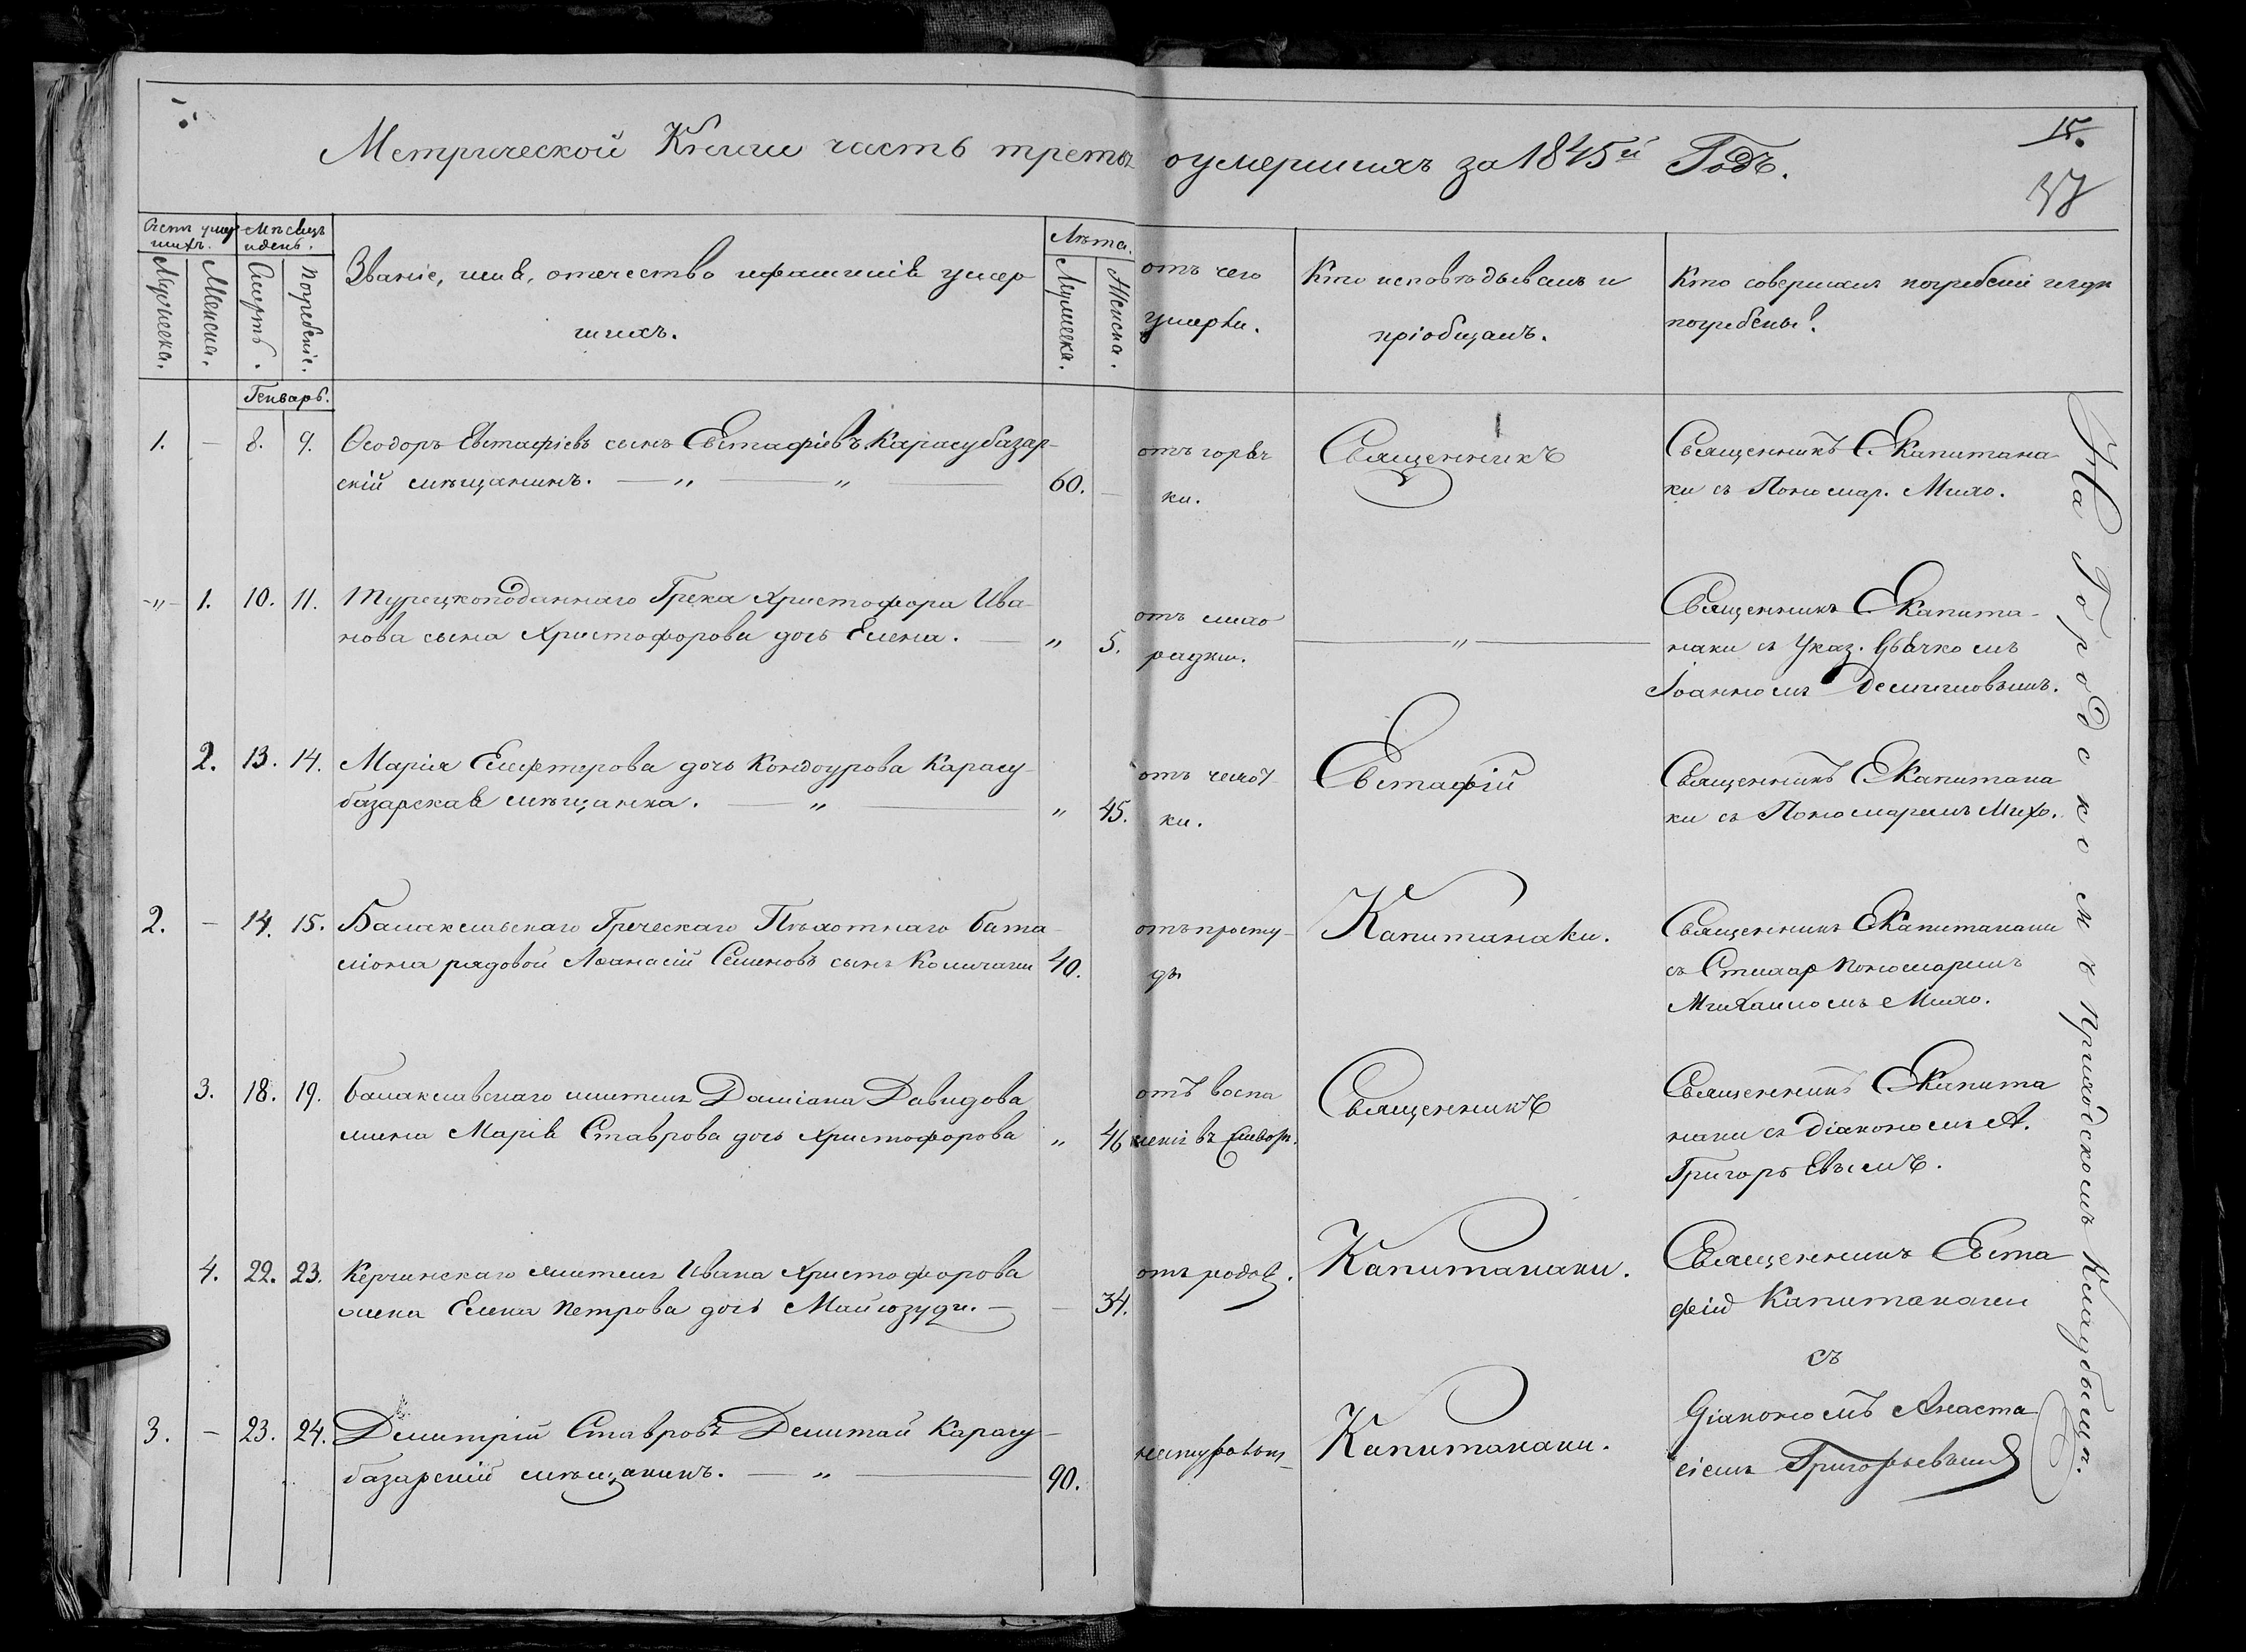 Метрической Книги часть третья оумершихъ за 1845й Годъ.
15.
37
Счетъ умершихъ.
Мужеска.
Женска.
Мѣсяцъ и день.
Смерть.
Погребеніе.
Званіе, имя, отчество и фамилія умер
шихъ.
Лѣта.
Мужеска.
Женска.
отъ чего
умерли.
Кто исповѣдывалъ и
пріобщалъ.
Кто совершалъ погребеніе и гдѣ
погребены?
Генварь.
1. — 8. 9. Ѳеодоръ Евстафіевъ сынъ Евстафіевъ Карасубазар-
скій мѣщанинъ. — „ — „ — 60. —
отъ горяч
ки.
Священникъ
Священникъ Е Капитана
ки съ Пономар. Михо.
„ 1. 10. 11. Турецкоподаннаго Грека Христофора Ива-
нова сына Христофорова дочь Елена. — „ 5.
отъ лихо
радки.
— „ —
Священникъ Е Капита-
наки съ Указ. Дьячкомъ
Іоанномъ
2. 13. 14. Марія Елефтерова дочь Кондоурова Карасу-
базарская мѣщанка. — „ — „ 45.
отъ чахот-
ки.
Евстафій
Священникъ Е Капитана
ки съ Пономаремъ Михо.
2. — 14. 15. Балаклавскаго Греческаго Пѣхотнаго бата-
ліона рядовой Аѳанасій Семеновъ сынъ 40.
отъ просту-
ды
Капитанаки.
Священникъ Е Капитанаки
съ Стихар Пономаремъ
Михаиломъ Михо.
3. 18. 19. Балаклавскаго жителя Даміана Давидова
жена Марія Ставрова дочь Христофорова „ 46
отъ воспа
ленія въ
Священникъ
Священникъ Е Капита
наки съ Діакономъ А.
Григорьевымъ.
4. 22. 23. Керчинскаго жителя Ивана Христофорова
жена Елена Петрова дочь — — 34.
отъ родовъ.
Капитанаки.
Священникъ Евста
фій Капитанаки
съ
3. — 23. 24. Димитрій Ставровъ Карасу-
базарскій мѣщанинъ. — „ — 90.
натуральн
Капитанаки.
Діакономъ Анаста
сіемъ Григорьевымъ
На Городскомъ Приходскомъ Кладбищѣ.